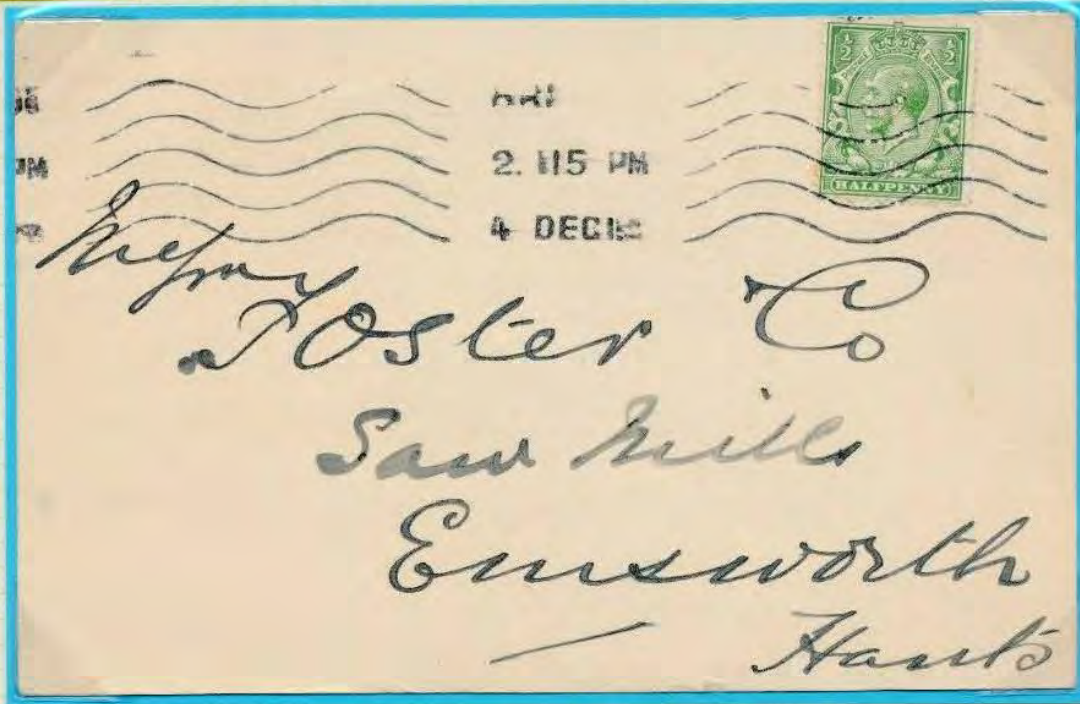 ½ ½
2. 115 PM
4 DEC
HALFPENNY
Messrs
Foster Co
Saw Mills
Emsworth
Hants